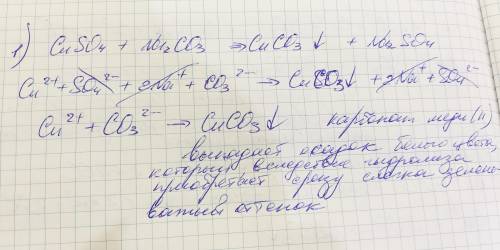 1) CuSO4 + Na2CO3 ⇒ CuCO3↓ + Na2SO4
Cu²⁺ + SO4²⁻ + 2Na⁺ + CO3²⁻ → CuCO3↓ + 2Na⁺ + SO4²⁻
Cu²⁺ + CO3²⁻ → CuCO3↓ карбонат меди (II)
выпадает осадок белого цвета,
который вследствие гидролиза
приобретает сразу слегка зелено-
ватый оттенок